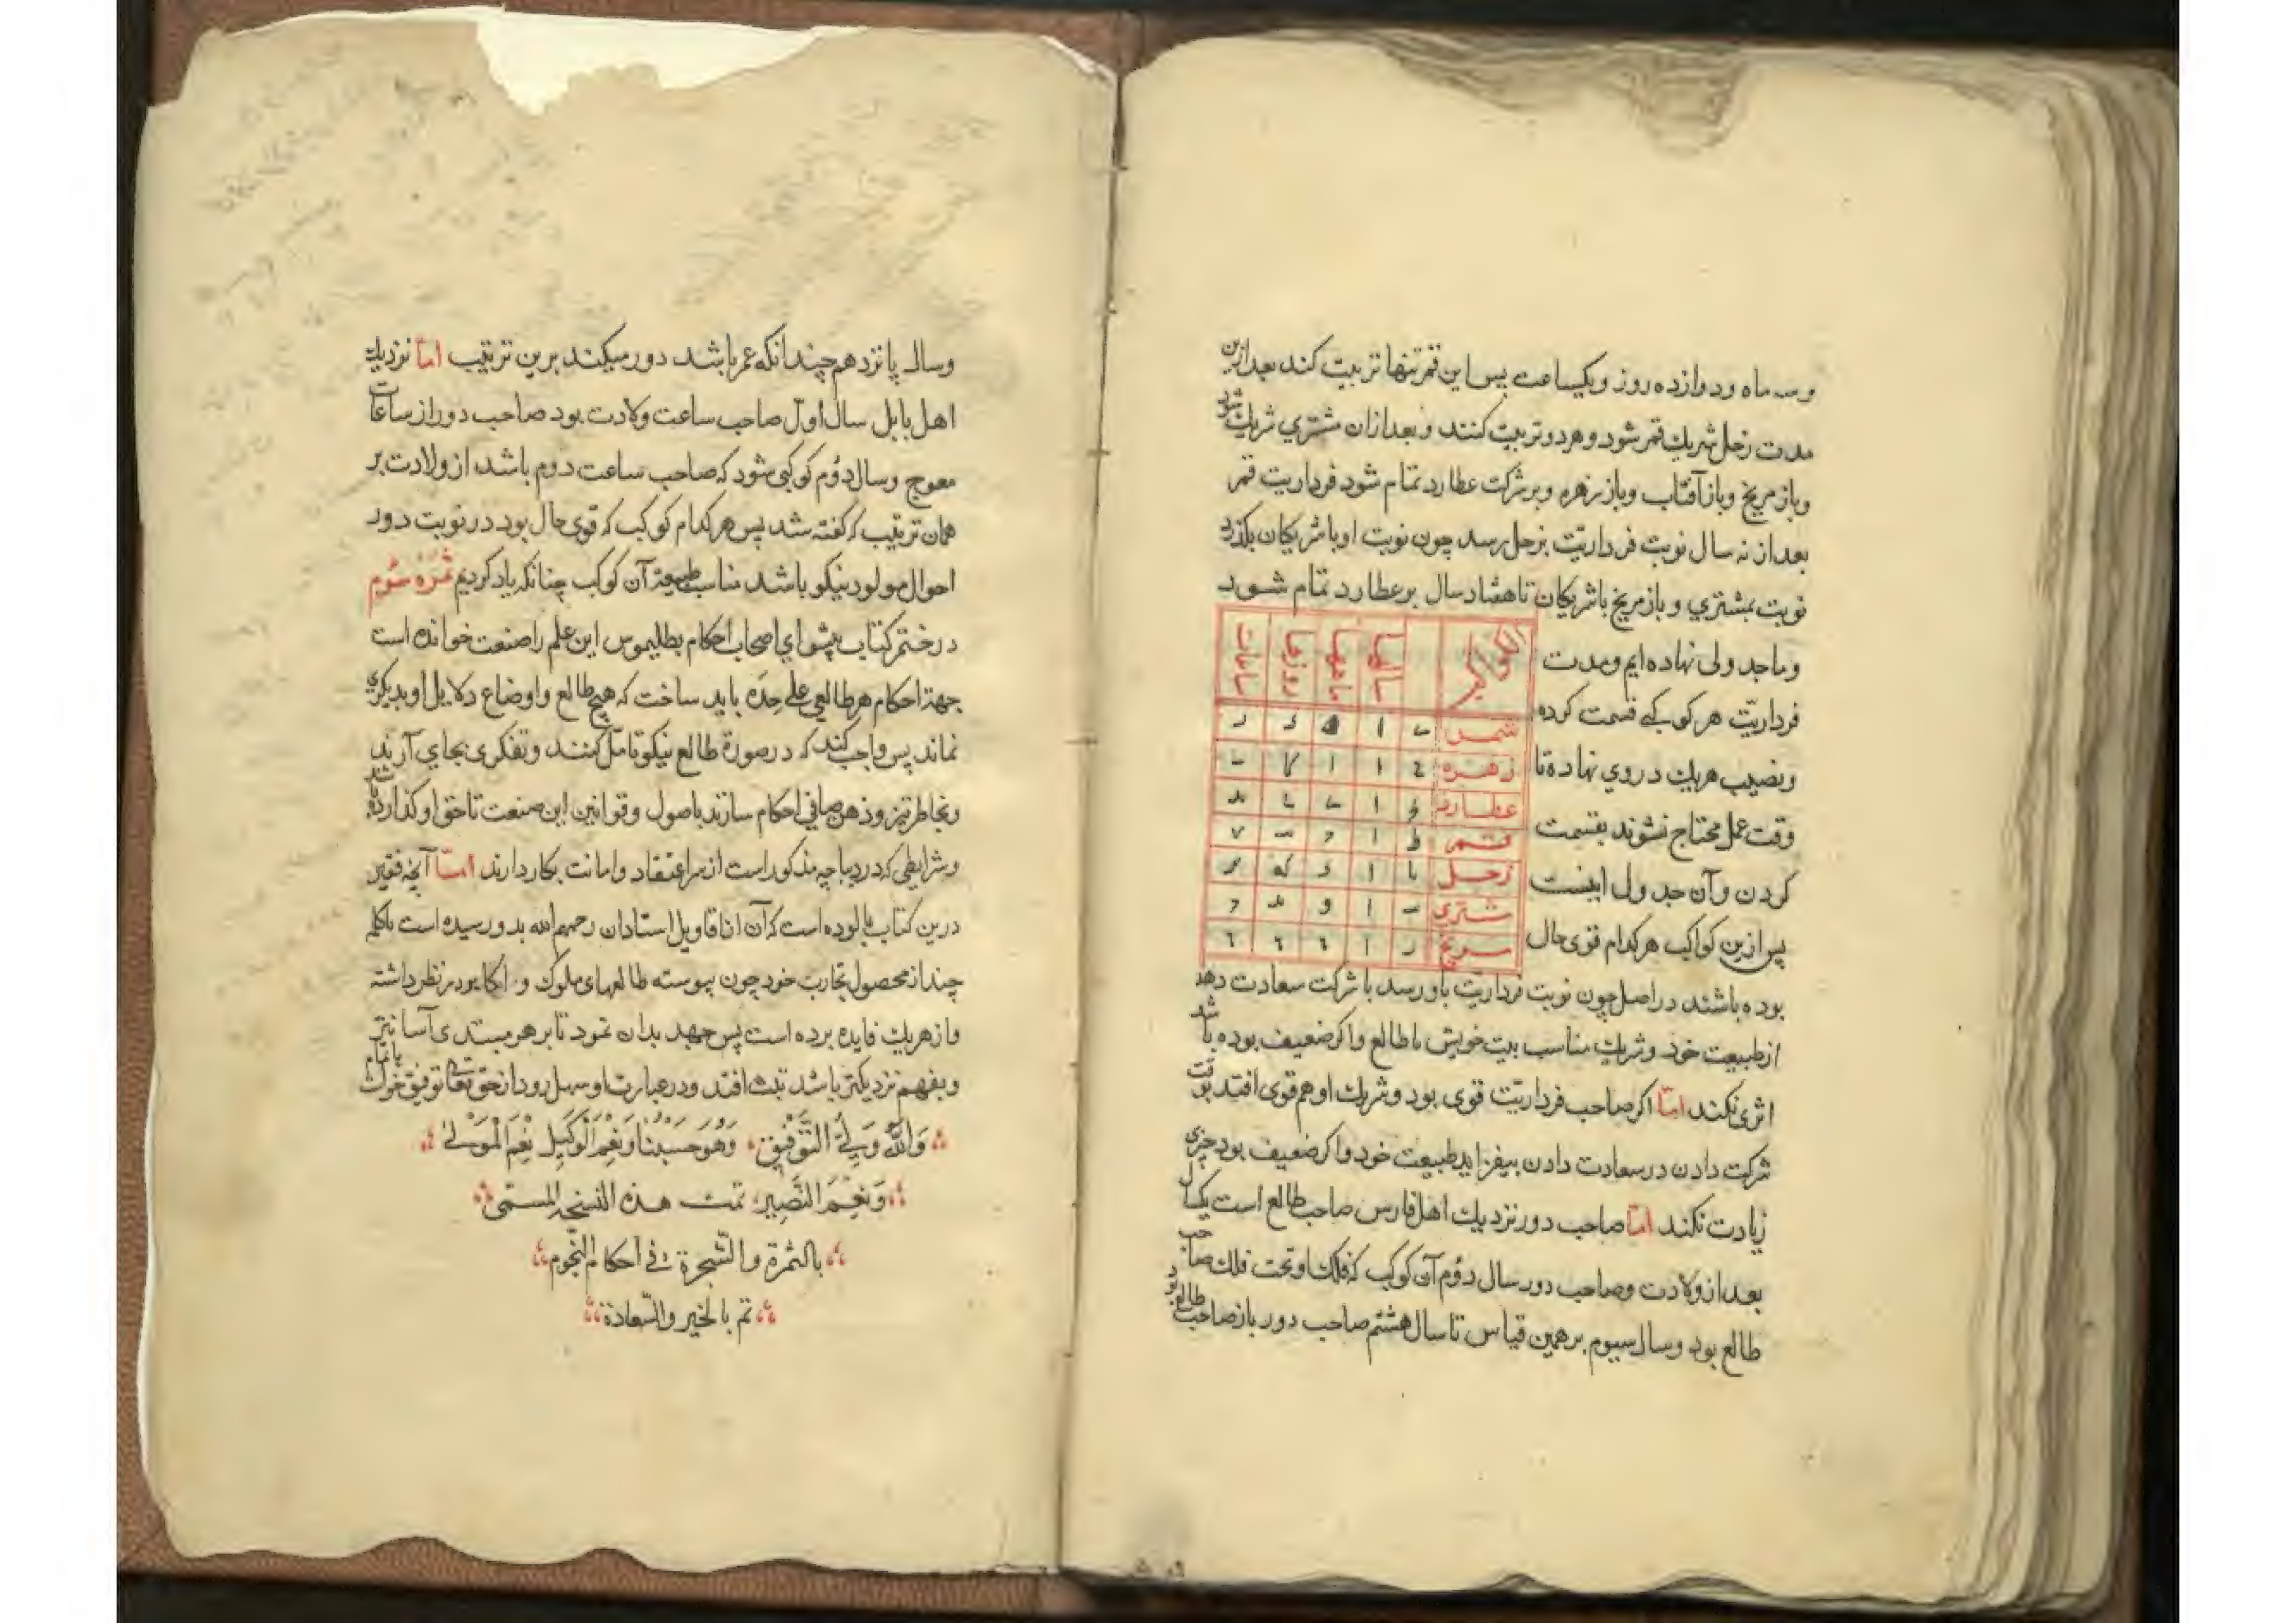 وسه ماه ودوازده روز ویکساعت پس این قمر تنها تربیت کند بعد ازین
مدت زحل شریك قمر شود و هر دو تربیت کنند و بعد ازان مشتري شریك شود
وباز مریخ وباز آفتاب وباز زهره وبر شرکت عطارد تمام شود فرداریت قمر
بعد از نه سال نوبت فرداریّت بزحل رسد چون نوبت او با شریکان بکذرد
نوبت بمشتري و باز مریخ با شریکان تا هفتاد سال بر عطارد تمام شود
وما جدولی نهاده ایم ومدت
فرداریّت هر کوکبے قسمت کرده
ونصیب هر یك در وي نهاده تا
وقت عمل محتاج نشوند بقسمت
کردن وآن جدول اینست
سالها ماهها روزها ساعات
شمس
زهره
عطارد
قمر
زحل
مشتري
مریخ
پس ازین کواکب هر کدام قوی حال
بوده باشند در اصل چون نوبت فرداریت باو رسد با شرکت سعادت دهد
از طبیعت خود وشریك مناسب بیت خویش با طالع واکر ضعیف بوده باشد
اثری نکند امّا اکر صاحب فرداریّت قوی بود وشریك او هم قوی افتد بوقت
شرکت دادن در سعادت دادن بیفزاید طبیعت خود واکر ضعیف بود چیزی
زیادت نکند امّا صاحب دور نزدیك اهل فارس صاحب طالع است یکسال
بعد از ولادت وصاحب دور سال دوُم آن کوکب که فلك او تحت فلك صاحب
طالع بود وسال سیوم بر همین قیاس تا سال هشتم صاحب دور باز صاحب طالع بود
وسال پانزدهم چندانکه عمر باشد دور میکند برین ترتیب امّا نزدیك
اهل بابل سال اوّل صاحب ساعت ولادت بود صاحب دور از ساعات
معوج وسال دوُم کوکبی شود که صاحب ساعت دوم باشد از ولادت بر
همان ترتیب که گفته شد پس هر کدام کوکب که قوی حال بود در نوبت دور
احوال مولود نیکو باشد مناسب طبیعة آن کوکب چنانکه یاد کردیم ثمرهٔ سوُم
در ختم کتاب پیشواي اصحاب احکام بطلیموس این علم را صنعت خوانده است
جهة احکام هر طالعی علے حِدَه باید ساخت که هیچ طالع واوضاع دلایل او بدیکری
نماند پس واجب کند که در صورة طالع نیکو تامّل کنند وتفکری بجاي آرند
وبخاطر تیز وذهن صافي احکام سازند باصول وقوانین این صنعت تا حق او کذارده باشد
وشرایطی که در دیباچه مذکور است از سر اعتقاد وامانت بکار دارند امّا آنچه فقیر
درین کتاب پالوده است که آن از اقاویل استادان رحمهم الله بدو رسیده است با کلمه
چند از محصول تجارب خود چون پیوسته طالعهای ملوك و اکابر در نظر داشته
واز هر یك فایده برده است پس جهد بدان نمود تا بر هر مبتدی آسانتر
وبفهم نزدیکتر باشد ثبت افتد ودر عبارت او سهل رود از حق تعالی توفیق خواست باتمام
وَاللّٰهُ وَلِيُّ التَّوْفِيْقِ وَهُوَ حَسْبُنَا وَنِعْمَ الْوَكِيْلُ نِعْمَ الْمَوْلٰى
وَنِعْمَ النَّصِيْرُ تمت هذه النسخه المسمّى
بالثمرة والشّجرة في احكام النّجوم
تم بالخیر والسّعادة